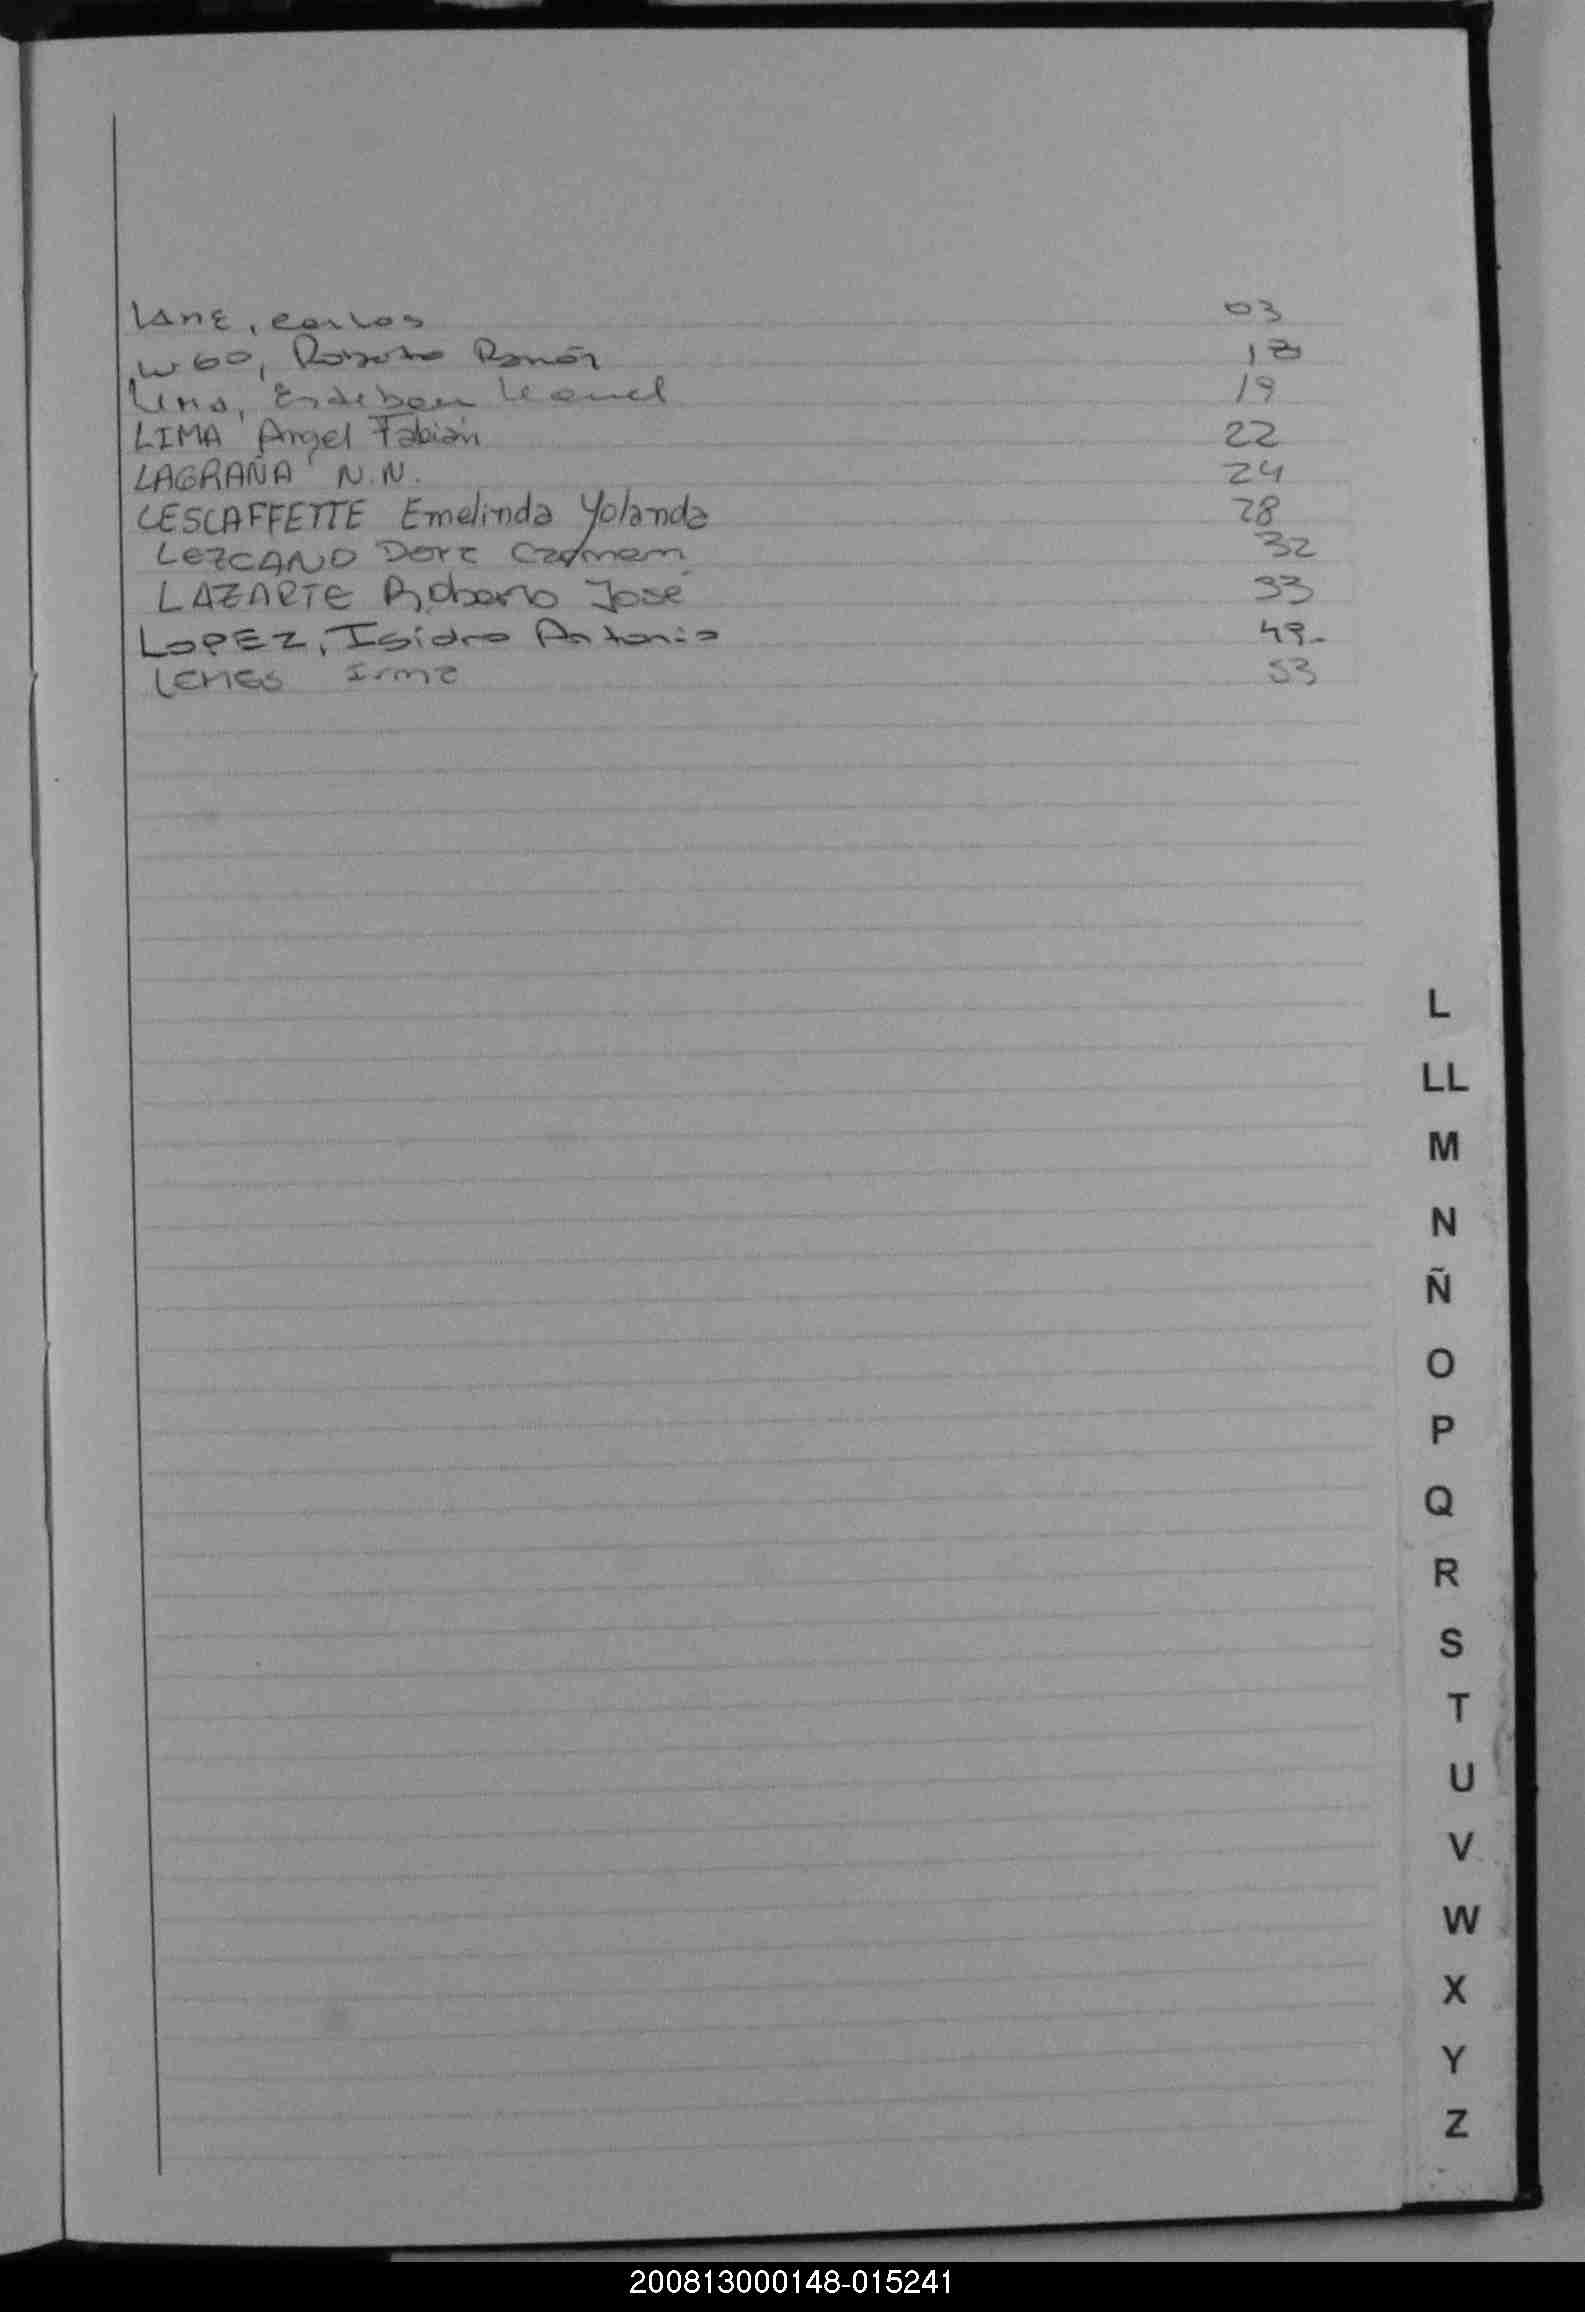 Lane, Carlos 03
Lugo, Roberto Ramón
Lima, Esteban Leonel 19
LIMA Angel Fabián 22
LAGRAÑA N.N. 24
LESCAFFETTE Emelinda Yolanda 28
LezCANO Dora Carmen 32
LAZARTE Roberto José 33
LOPEZ, Isidro Antonio 49-
Lemes Irma 53
L
LL
M
N
Ñ
O
P
Q
R
S
T
U
V
W
X
Y
Z
200813000148-015241